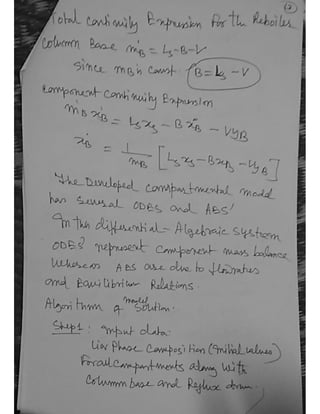 ②
Total continuity Expression for the Reboiler
Column Base ṁB = Ls-B-V
Since mB is const B = Ls - V
Component continuity Expression
mB ẋB = Ls xs - B xB - V yB
ẋB = 1/mB [Ls xs - B xB - V yB]
The Developed compartmental model
has several ODEs and AES'
In this differential - Algebraic System
ODES represent component mass balance
Whereas AES are due to flowrates
and Equilibrium Relations.
Algorithm of model Solution.
Step 1: input data:
Liq Phase Composition (Initial values)
For all compartments along with
Column base and Reflux drum.